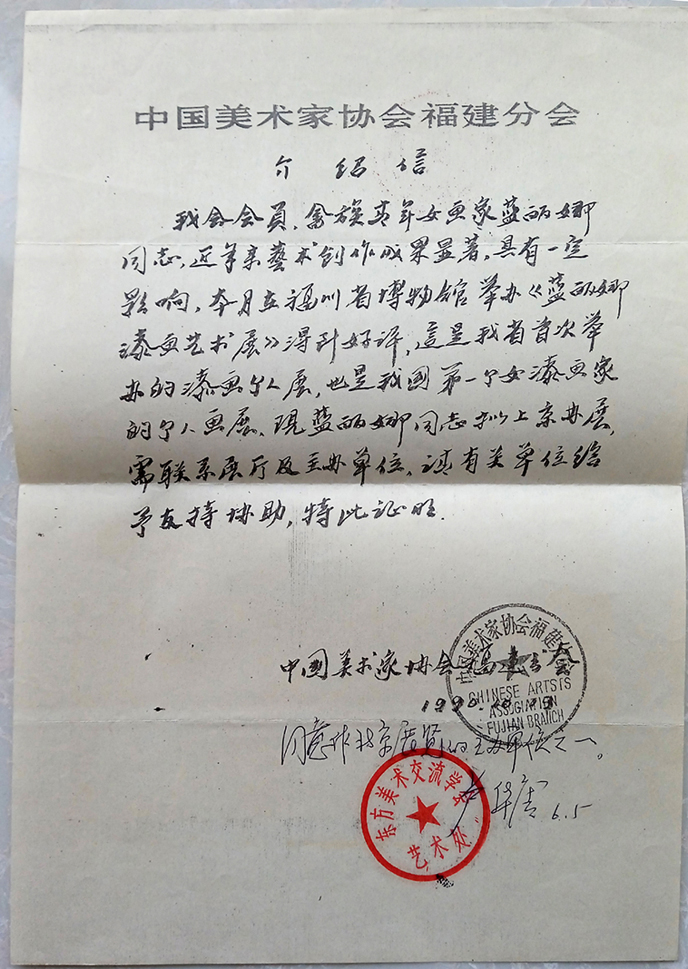 中国美术家协会福建分会
介绍信
我会会员，畲族青年女画家蓝丽娜
同志，近年来藝术创作成果显著，具有一定
影响，本月在福州省博物馆举办《蓝丽娜
漆画艺术展》得到好评，這是我省首次举
办的漆画个人展，也是我國第一个女漆画家
的个人画展，現蓝丽娜同志拟上京办展，
需联系展厅及主办单位，请有关单位给
予支持协助，特此证明.
中國美术家协会福建分会
中国美术家协会福建分会
CHINESE ARTSTS
ASSOCIATION
FUJIAN BRANCH
同意作北京展览的主办单位之一。
华
6.5
东方美术交流学会
艺术处